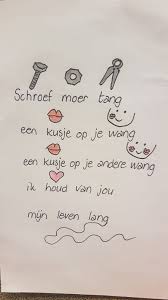 Schroef moer tang
een kusje op je wang
een kusje op je andere wang
ik houd van jou
mijn leven lang